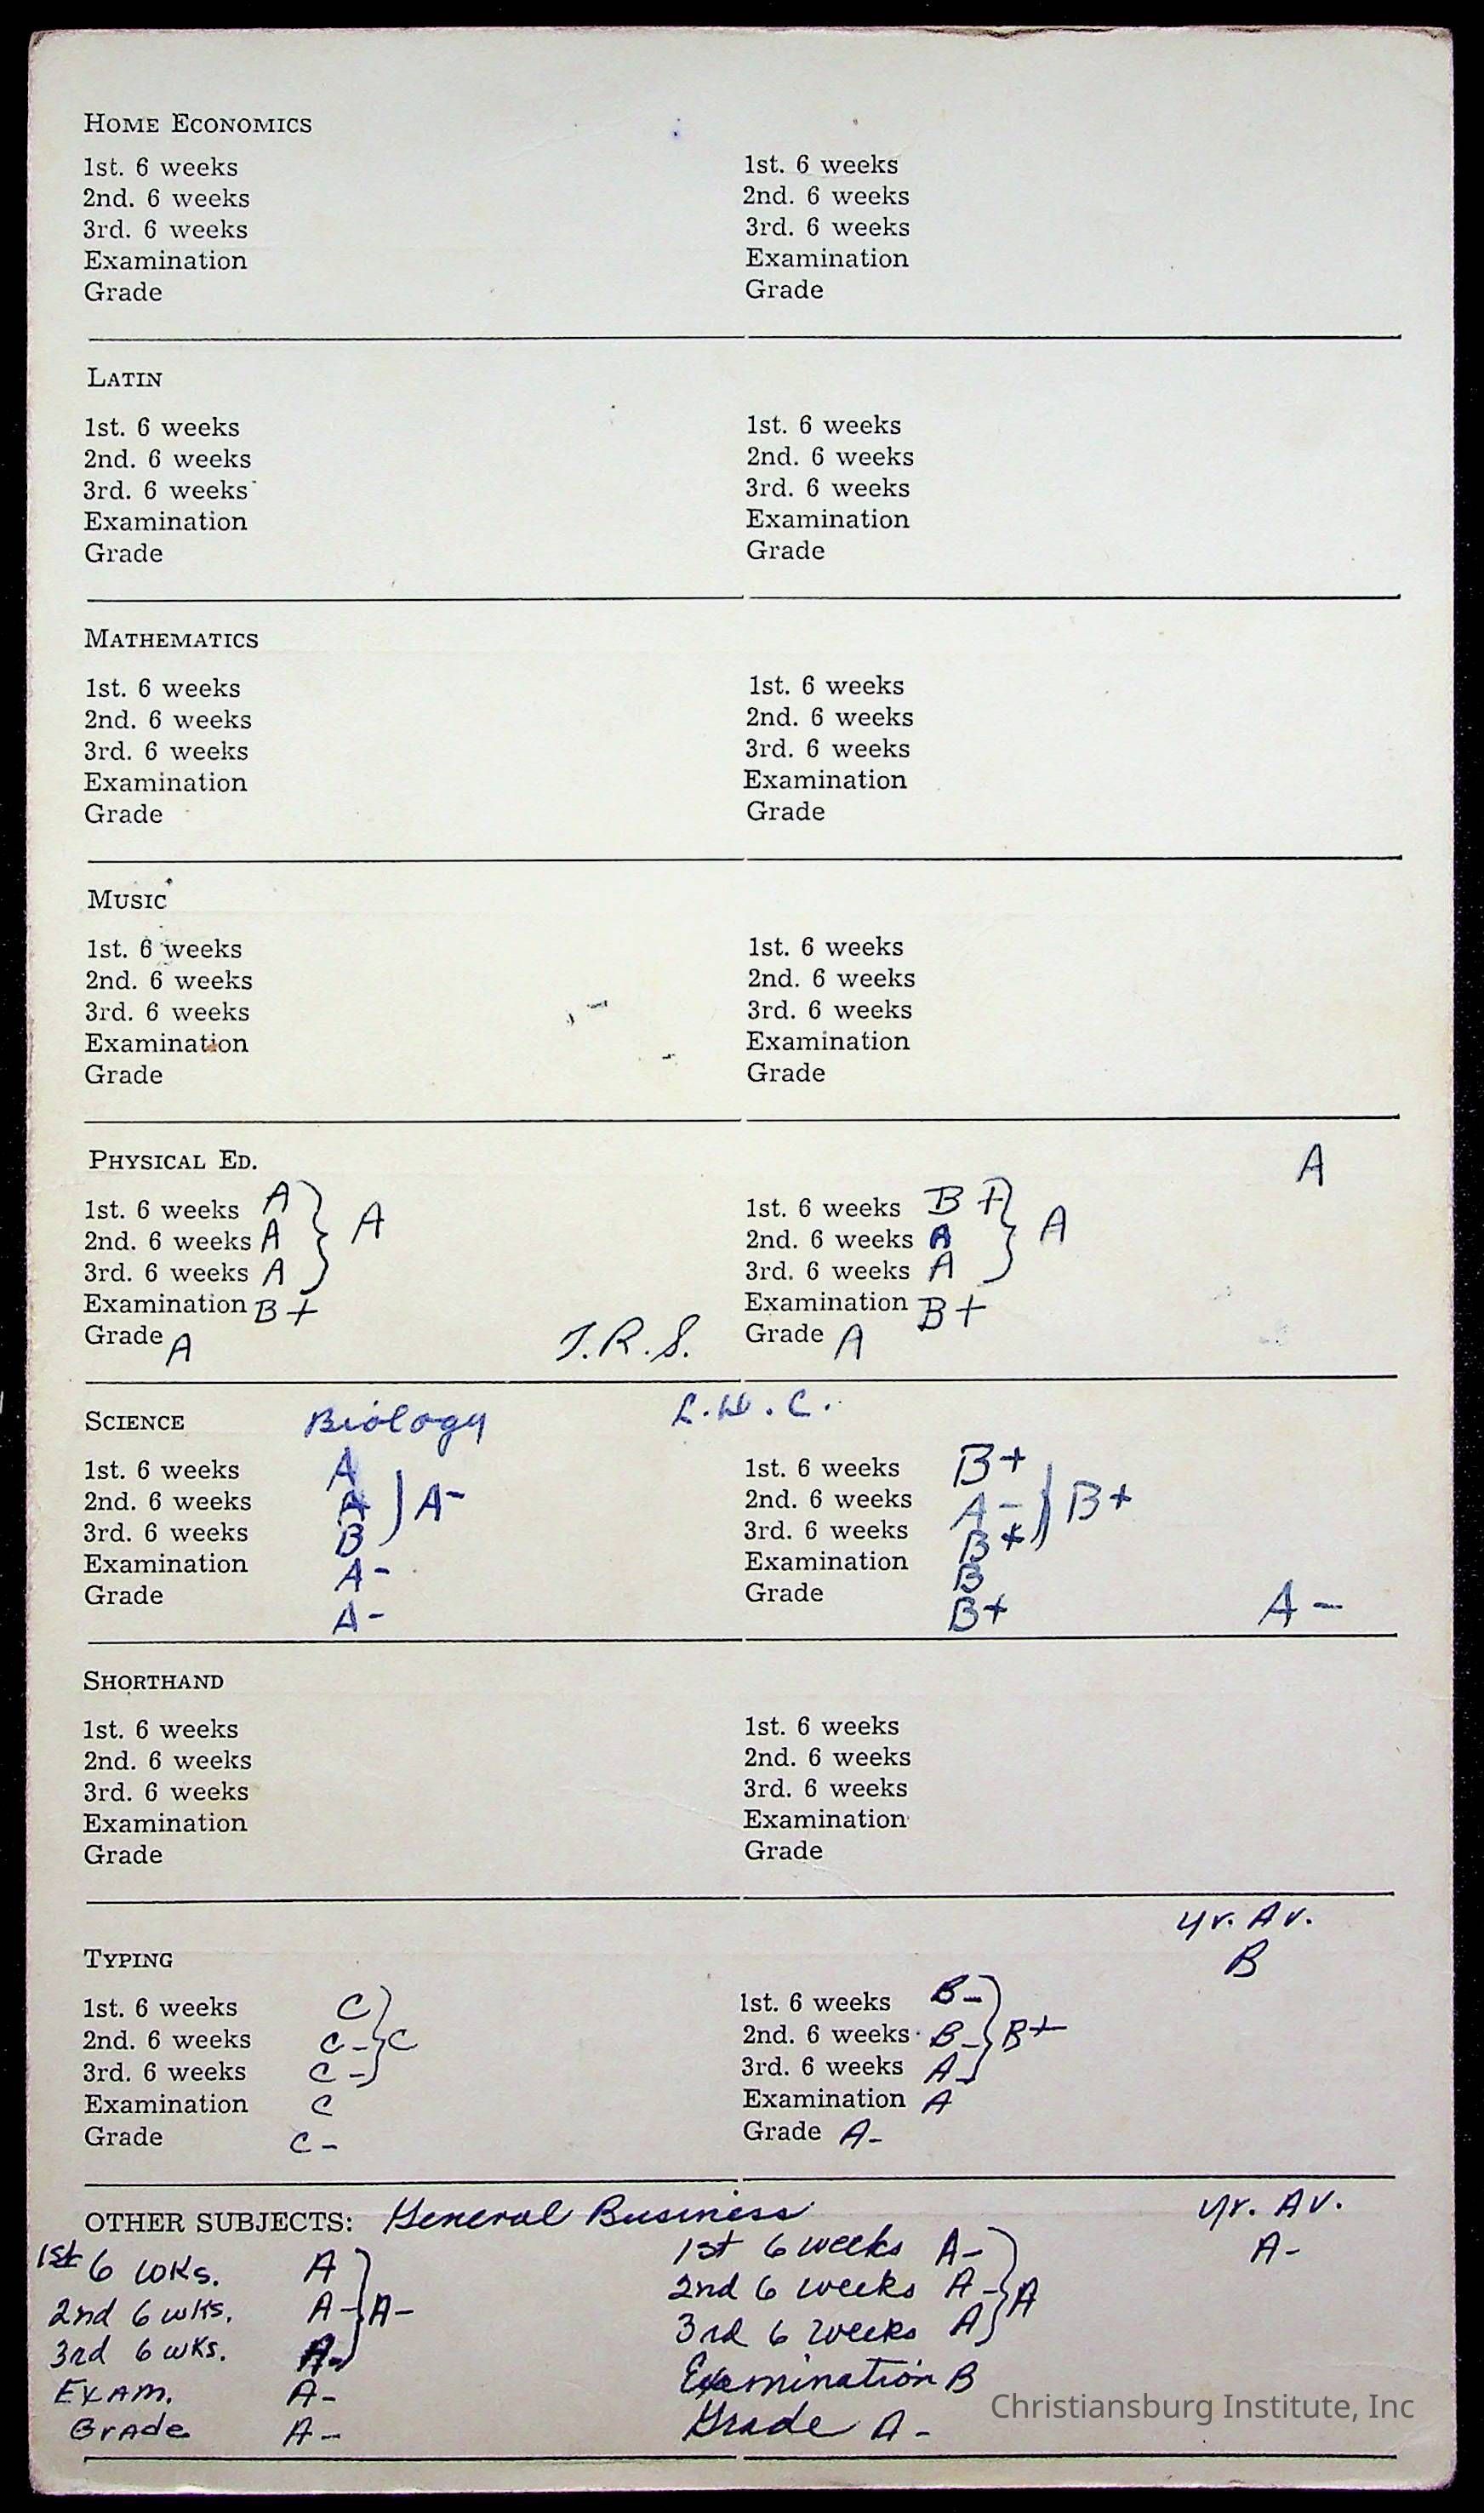 HOME ECONOMICS
1st. 6 weeks 1st. 6 weeks
2nd. 6 weeks 2nd. 6 weeks
3rd. 6 weeks 3rd. 6 weeks
Examination Examination
Grade Grade
LATIN
1st. 6 weeks 1st. 6 weeks
2nd. 6 weeks 2nd. 6 weeks
3rd. 6 weeks 3rd. 6 weeks
Examination Examination
Grade Grade
MATHEMATICS
1st. 6 weeks 1st. 6 weeks
2nd. 6 weeks 2nd. 6 weeks
3rd. 6 weeks 3rd. 6 weeks
Examination Examination
Grade Grade
MUSIC
1st. 6 weeks 1st. 6 weeks
2nd. 6 weeks 2nd. 6 weeks
3rd. 6 weeks 3rd. 6 weeks
Examination Examination
Grade Grade
PHYSICAL ED. A
1st. 6 weeks A 1st. 6 weeks B+
2nd. 6 weeks A } A 2nd. 6 weeks A } A
3rd. 6 weeks A 3rd. 6 weeks A
Examination B+ Examination B+
Grade A J.R.S. Grade A
SCIENCE Biology L.W.C.
1st. 6 weeks A 1st. 6 weeks B+
2nd. 6 weeks A } A- 2nd. 6 weeks A- } B+
3rd. 6 weeks B 3rd. 6 weeks B+
Examination A- Examination B
Grade A- Grade B+ A-
SHORTHAND
1st. 6 weeks 1st. 6 weeks
2nd. 6 weeks 2nd. 6 weeks
3rd. 6 weeks 3rd. 6 weeks
Examination Examination
Grade Grade
yr. Av.
TYPING B
1st. 6 weeks C 1st. 6 weeks B-
2nd. 6 weeks C- } C 2nd. 6 weeks B- } B+
3rd. 6 weeks C- 3rd. 6 weeks A-
Examination C Examination A
Grade C- Grade A-
OTHER SUBJECTS: General Business yr. Av.
1st 6 wks. A 1st 6 weeks A- A-
2nd 6 wks. A- } A- 2nd 6 weeks A- } A
3rd 6 wks. A- 3rd 6 weeks A
Exam. A- Examination B
Grade A- Grade A-
Christiansburg Institute, Inc